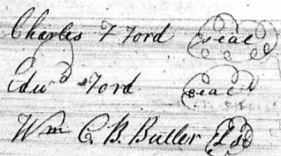 Charles T Ford (seal)
Edwd Ford (seal)
Wm C. B. Butler (LS)